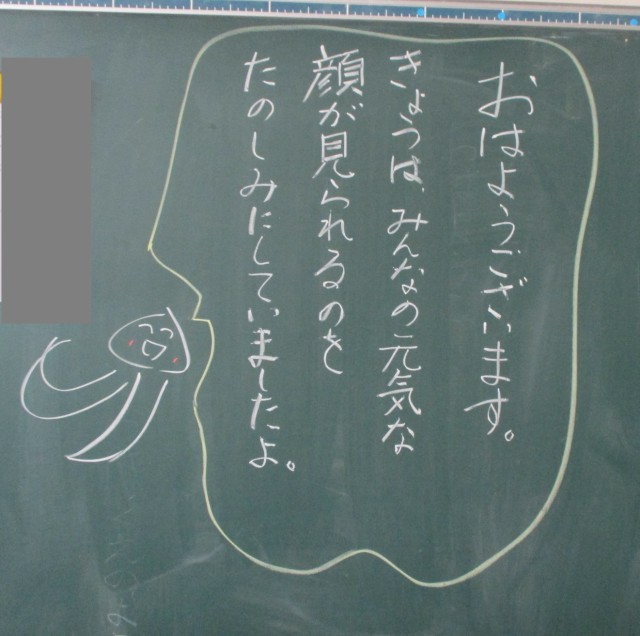 おはようございます。
きょうは、みんなの元気な
顔が見られるのを
たのしみにしていましたよ。